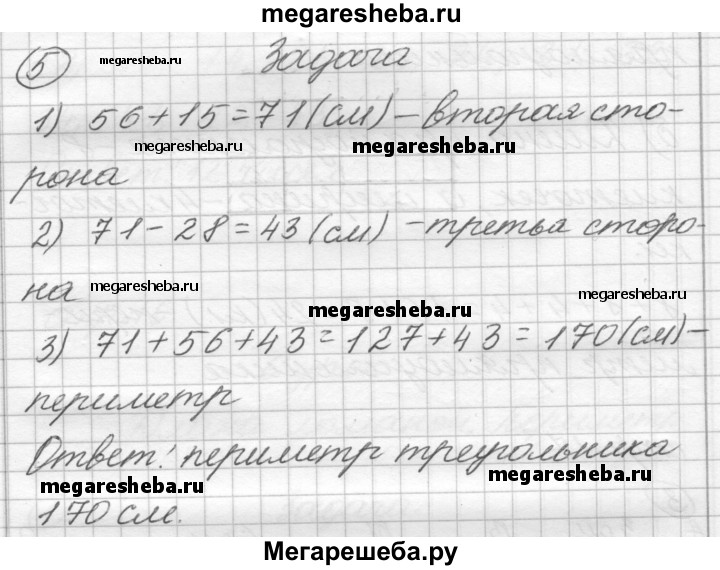 megaresheba.ru
5 megaresheba.ru Задача
1) 56+15=71(см) – вторая сто-
megaresheba.ru megaresheba.ru
рона
2) 71-28=43(см) – третья сторо-
на megaresheba.ru megaresheba.ru
megaresheba.ru
3) 71+56+43=127+43=170(см) –
периметр
Ответ: периметр треугольника
megaresheba.ru megaresheba.ru
170 см.
Мегарешеба.ру